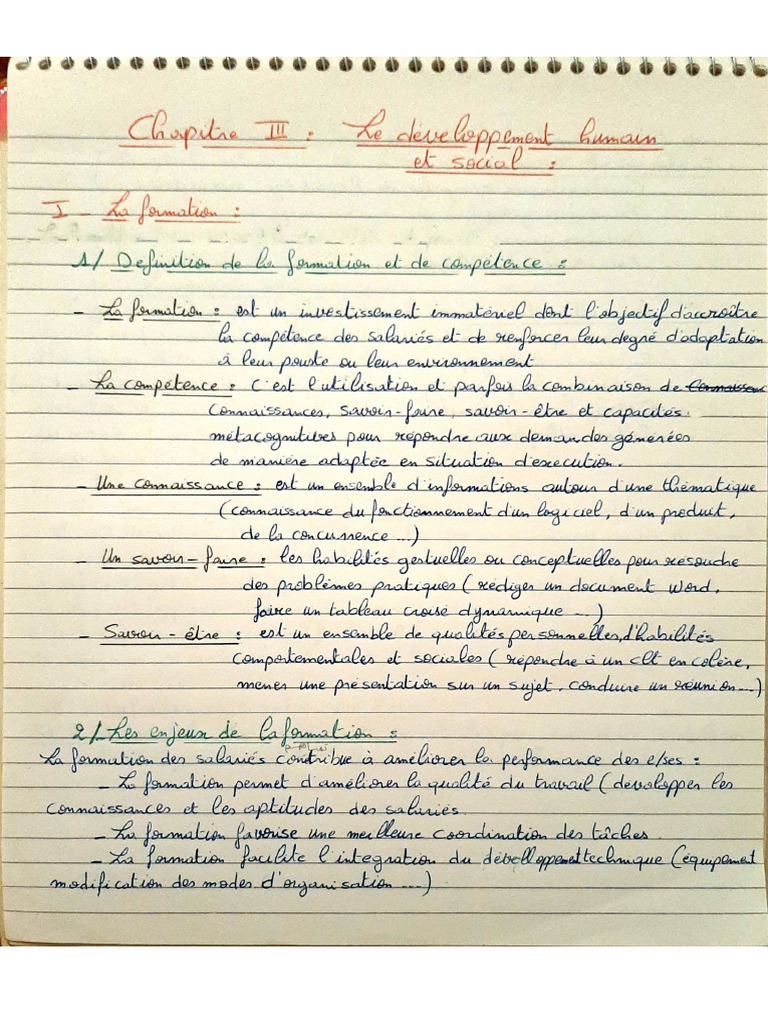 Chapitre III : Le développement humain
et social :
I - La formation :
1/ Définition de la formation et de compétence :
- La formation : est un investissement immatériel dont l'objectif d'accroître
la compétence des salariés et de renforcer leur degré d'adaptation
à leur pouste ou leur environnement
- La compétence : c'est l'utilisation et parfois la combinaison de
connaissances, savoir-faire, savoir-être et capacités
métacognitives pour répondre aux demandes générées
de manière adaptée en situation d'exécution.
- Une connaissance : est un ensemble d'informations autour d'une thématique
(connaissance du fonctionnement d'un logiciel, d'un produit,
de la concurrence ...)
- Un savoir-faire : les habilités gestuelles ou conceptuelles pour résoudre
des problèmes pratiques (rédiger un document Word,
faire un tableau croisé dynamique ...)
- Savoir-être : est un ensemble de qualités personnelles, d'habilités
comportementales et sociales (répondre à un clt en colère,
mener une présentation sur un sujet, conduire un réunion...)
2/ Les enjeux de la formation :
La formation des salariés contribue à améliorer la performance des e/ses :
- La formation permet d'améliorer la qualité du travail (développer les
connaissances et les aptitudes des salariés
- La formation favorise une meilleure coordination des tâches.
- La formation facilite l'intégration du développement technique (équipement
modification des modes d'organisation ...)